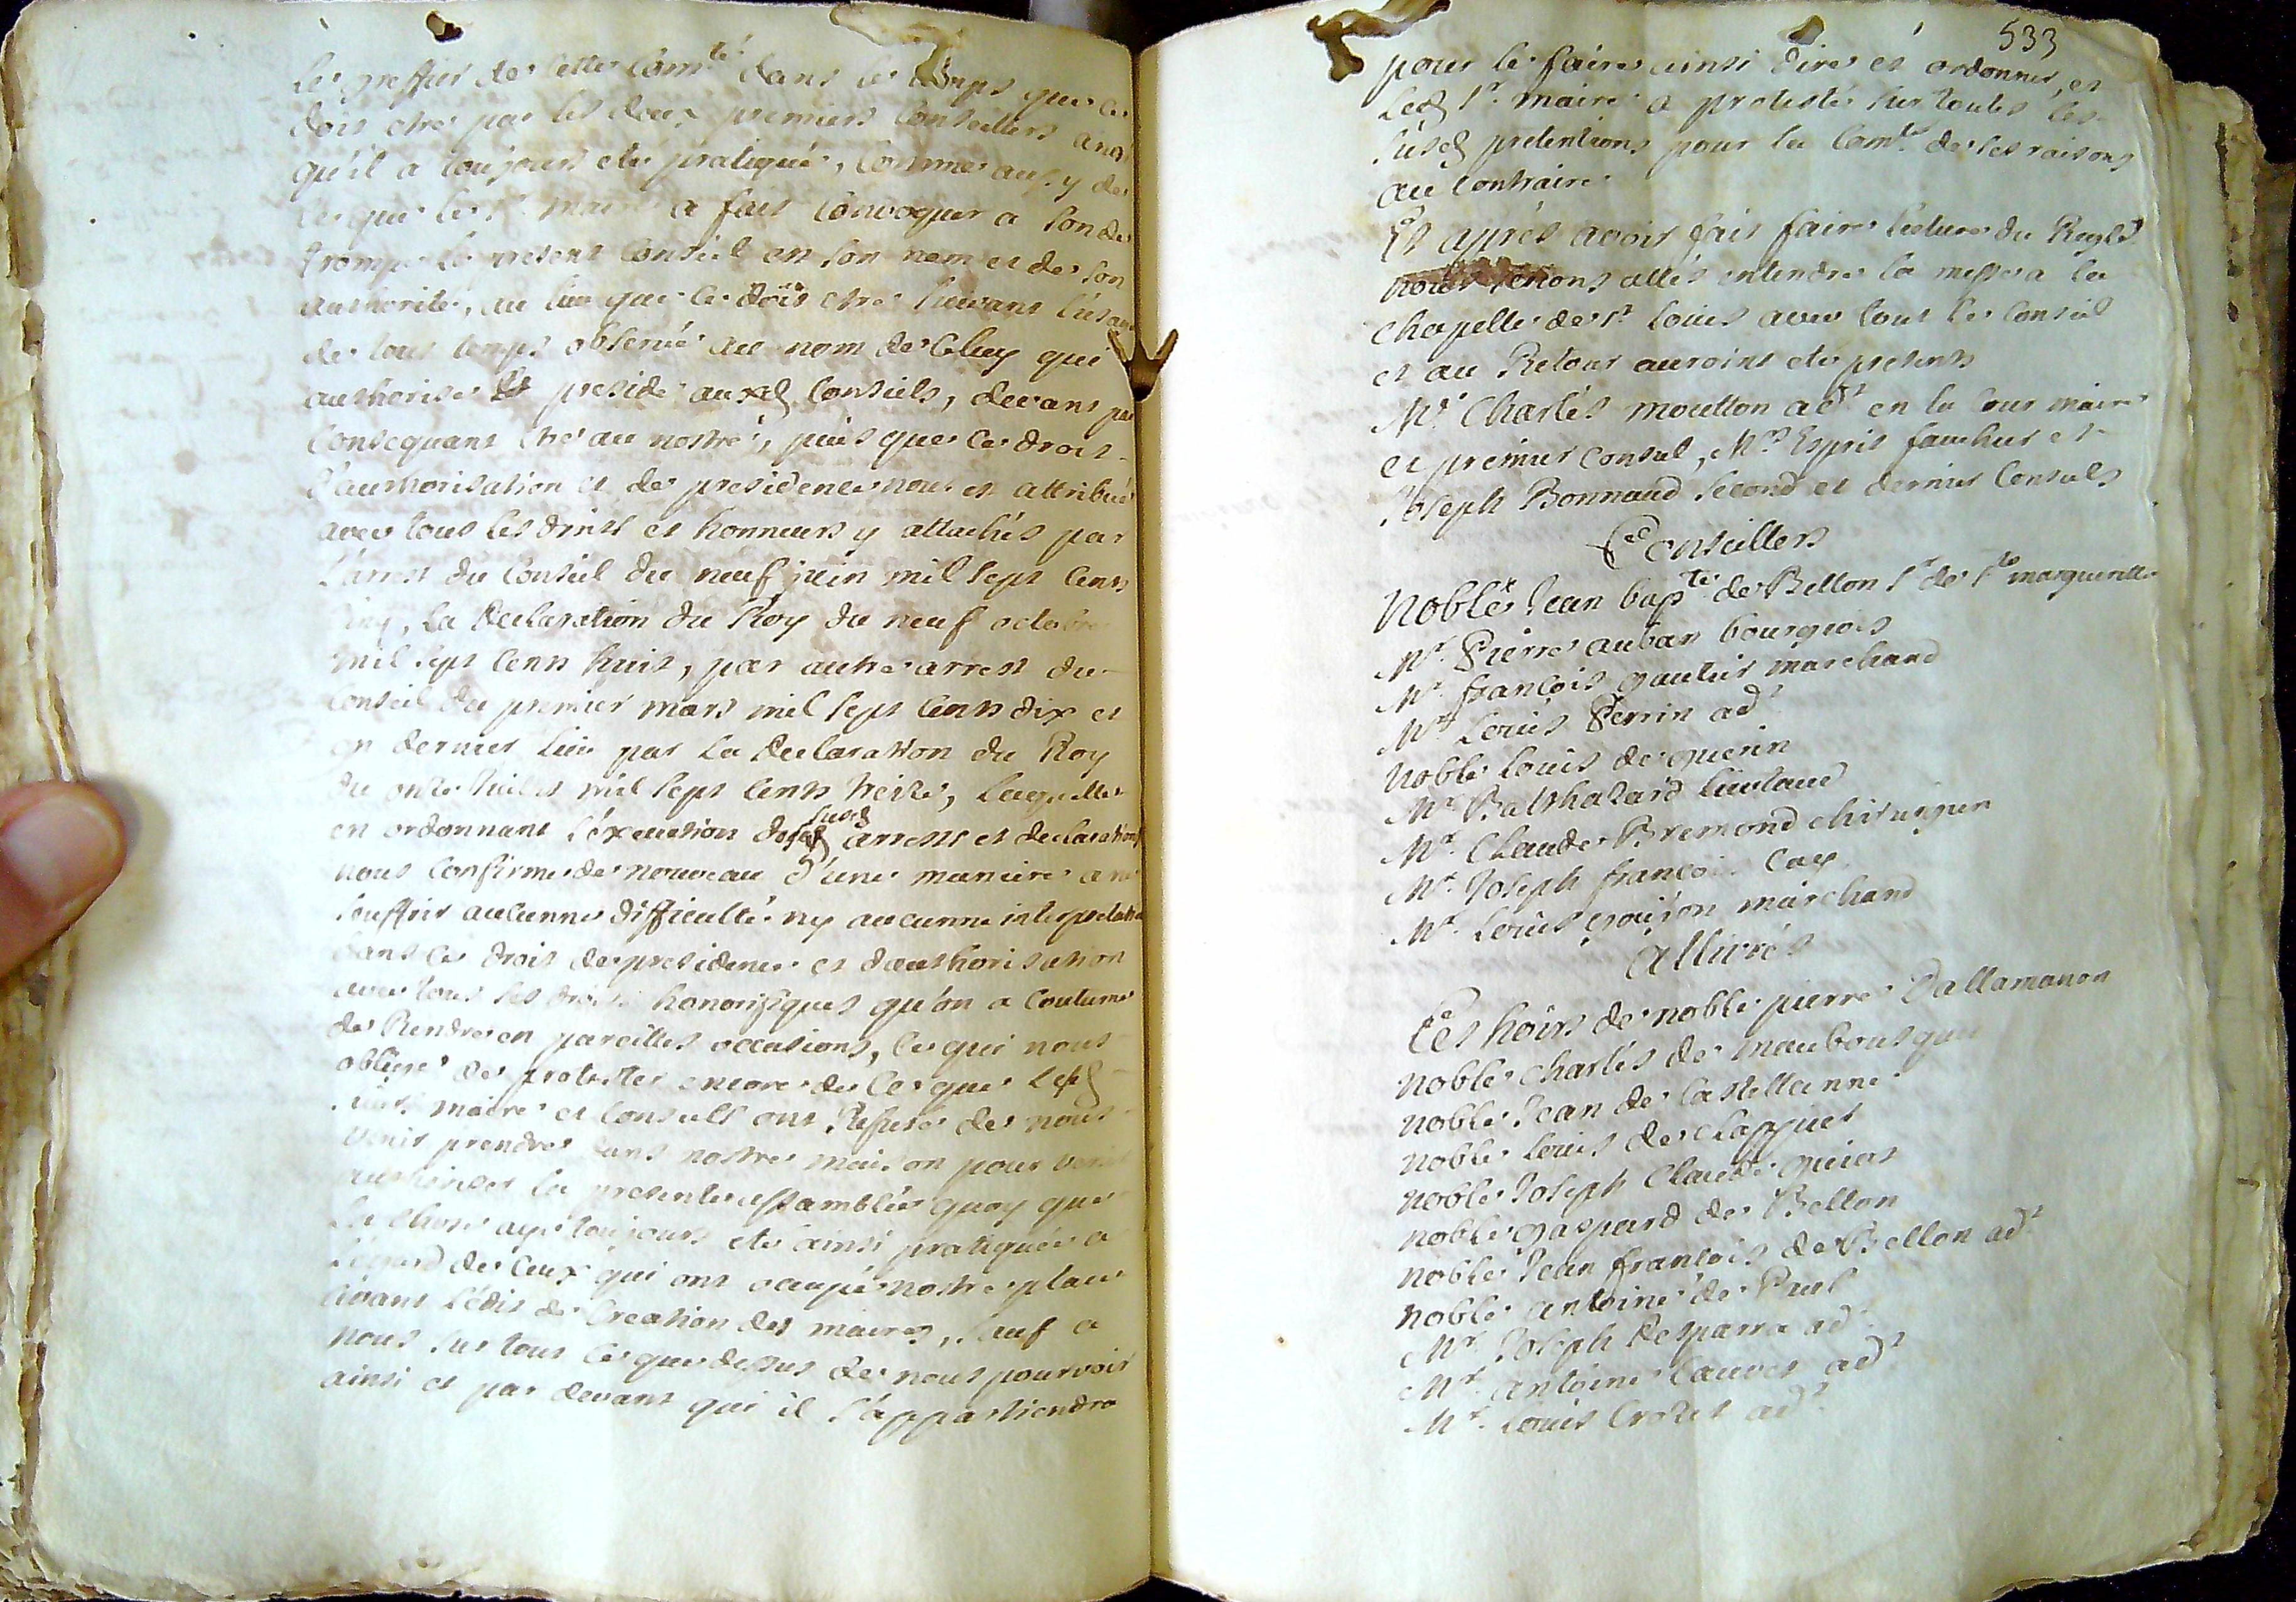 le greffier de cette Com.té dans le temps que ce
dois estre par les deux premiers Conseillers ains
qu'il a toujours eté pratiqué, Comme aussy de
ce que le s.r maire a fait Convoquer a son de
trompe le present Conseil en son nom et de son
authorité, au lieu que ce dois estre suivant l'usage
de tous temps observé au nom de Celuy qui
authorise et preside auxd Conseils, devant par
Consequant estre au nostre, puis que ce droit
d'authorisation et de presidence nous est attribué
avec tous les droits et honneurs y attachés par
l'arrest du Conseil du neuf juin mil sept Cents
cinq, la declaration du Roy du neuf octobre
mil sept Cents huit, par autre arrest du
Conseil du premier mars mil sept Cents dix et
en dernier lieu par la declaration du Roy
du onze Juillet mil sept Cents treize, laquelle
en ordonnant l'éxecution susd arrests et declarations
nous Confirme de nouveau d'une maniere a ne
souffrir aucunne difficulté ny aucunne interpretation
dans ce droit de presidence et d'authorisation
avec tous les droits honorifiques qu'on a Coutume
de Rendre en pareilles occasions, ce qui nous
oblige de protester encore de Ce que lesd
maire et Consuls ont Refusé de nous
venir prendre dans nostre maison pour venir
authoriser la presente assamblée quoy que
la chose aye toujours eté ainsi pratiquée a
l'égard de Ceux qui ont occupé nostre place
avant l'édit de Creation des maires, sauf a
nous sur tout ce que dessus de nous pourvoir
ainsi et par devant qui il s'appartiendra
533
pour le faire ainsi dire et ordonner, et
Led s.r maire a protesté sur toutes les
susd pretentions pour la Com.té de ses raisons
au Contraire
Et aprés avoir fait faire lecture du Regl.t
nous serions allés entendre la messe a la
chapelle de s.t Louis avec tout le Conseil
et au Retour auroint eté presents
M.r Charles moutton ad.t en la Cour maire
et premier Consul, M.rs Esprit faucher et
Joseph Bonnaud second et dernier Consuls
Conseillers
Noble Jean bap.te de Bellon s.r de s.te margueritte
M.r Pierre auban bourgeois
M.r françois gautier marchand
M.r Louis Perrin ad.t
Noble Louis de guerin
M.r Balthazard Lieutaud
M.r Claude Bremond chirurgien
M.r Joseph francois Cay
M.r Louis marchand
allivrés
Les hoirs de noble pierre Dallamanon
Noble Charles de maubousquet
Noble Jean de Castellanne
Noble Louis de Clappier
Noble Joseph Claude
Noble gaspard de Bellon
Noble Jean francois de Bellon ad.t
Noble antoine de Paul
M.r Joseph Desparra ad.t
M.r antoine Cauvet ad.t
M.r Louis Crozet ad.t